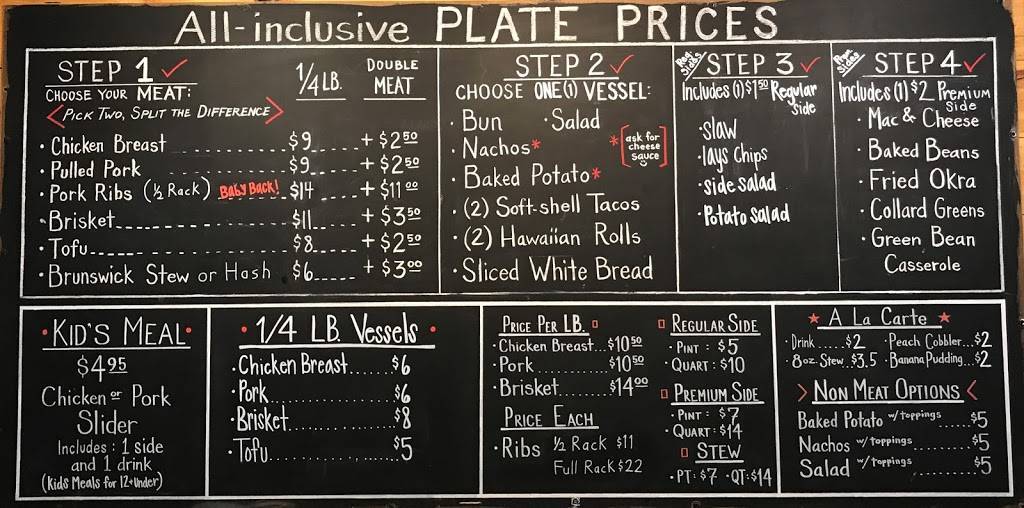 All-inclusive PLATE PRICES
STEP 1 ✓
CHOOSE YOUR MEAT:
<PICK TWO, SPLIT THE DIFFERENCE>
1/4 LB. DOUBLE MEAT
· Chicken Breast $9 + $2 50
· Pulled Pork $9 + $2 50
· Pork Ribs (½ Rack) BABY BACK! $14 + $11 00
· Brisket $11 + $3 50
· Tofu $8 + $2 50
· Brunswick Stew or Hash $6 + $3 00
STEP 2 ✓
CHOOSE ONE (1) VESSEL:
· Bun · Salad
· Nachos*
* [ask for
cheese
sauce]
· Baked Potato*
· (2) Soft-shell Tacos
· (2) Hawaiian Rolls
· Sliced White Bread
Reg. Sides STEP 3 ✓
Includes (1) $1 50 Regular
Side
· slaw
· lays Chips
· side salad
· Potato salad
Prem. Sides STEP 4 ✓
Includes (1) $2 Premium
Side
· Mac & Cheese
· Baked Beans
· Fried Okra
· Collard Greens
· Green Bean
Casserole
· KID'S MEAL ·
$4 95
Chicken or Pork
Slider
Includes: 1 side
and 1 drink
(kids Meals for 12+under)
· 1/4 LB. Vessels ·
· Chicken Breast......$6
· Pork............$6
· Brisket...........$8
· Tofu..............$5
PRICE PER LB.
· Chicken Breast...$10 50
· Pork............$10 50
· Brisket..........$14 00
PRICE EACH
· Ribs ½ Rack $11
Full Rack $22
REGULAR SIDE
· PINT: $5
· QUART: $10
PREMIUM SIDE
· PINT: $7
· QUART: $14
STEW
· PT: $7 · QT: $14
★ A La Carte ★
· Drink......$2 · Peach Cobbler...$2
· 8oz. Stew..$3.5 · Banana Pudding...$2
> NON MEAT OPTIONS <
Baked Potato w/toppings......$5
Nachos w/toppings..........$5
Salad w/toppings..........$5